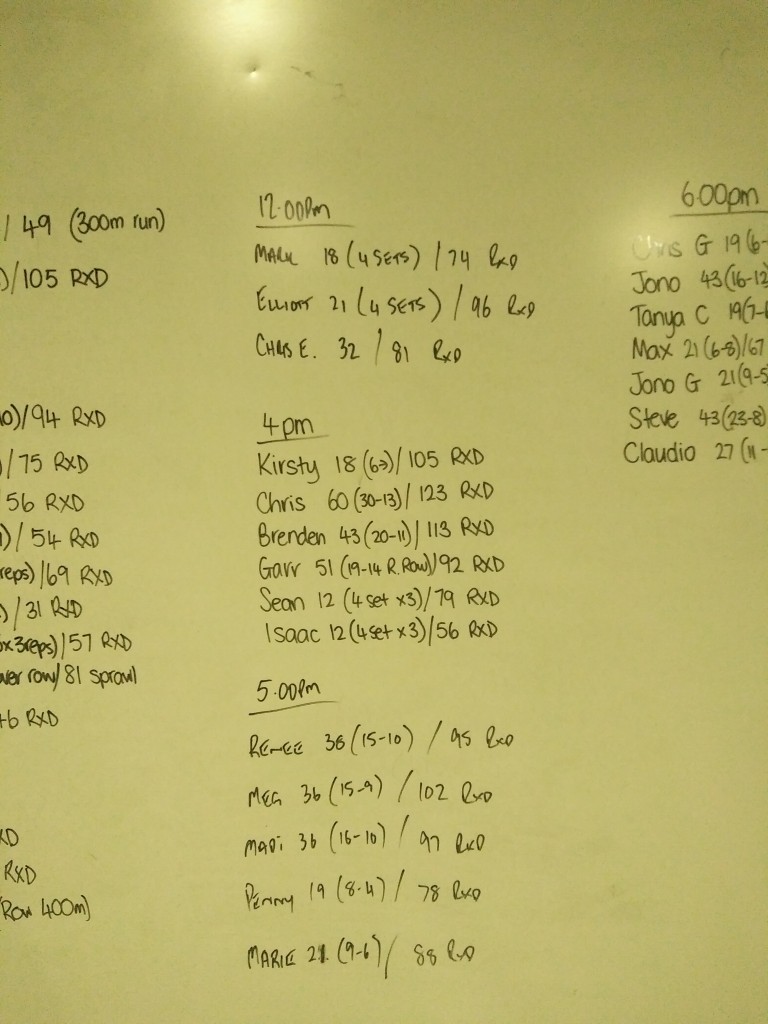 / 49 (300m run)
)/105 RXD
)/94 RXD
/75 RXD
56 RXD
)/ 54 RXD
reps)/69 RXD
)/31 RXD
x3reps)/57 RXD
row/81 sprawl
6 RXD
XD
RXD
(Row 400m)
12.00pm
MARK 18 (4 SETS) / 74 RXD
ELLIOTT 21 (4 SETS) / 96 RXD
CHRIS E. 32 / 81 RXD
4pm
Kirsty 18 (6→)/ 105 RXD
Chris 60 (30-13)/ 123 RXD
Brenden 43 (20-11)/ 113 RXD
Garr 51 (19-14 R.Row)/92 RXD
Sean 12 (4 set x3)/79 RXD
Isaac 12 (4set x3)/56 RXD
5.00pm
RENEE 36 (15-10) / 95 RXD
MEG 36 (15-9) / 102 RXD
MADi 36 (16-10) / 97 RXD
PENNY 19 (8-4) / 78 RXD
MARIE 21. (9-6) / 88 RXD
6.00pm
Chris G 19 (6-
Jono 43 (16-12
Tanya C 19(7-
Max 21 (6-8)/67
Jono G 21 (9-5
Steve 43 (23-8)
Claudio 27 (11-